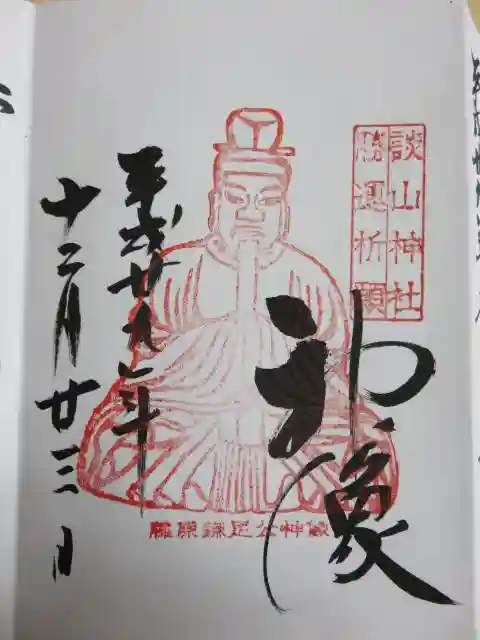 談山神社
勝運祈願
神像
平成廿九年
十二月廿三日
藤原鎌足公神像